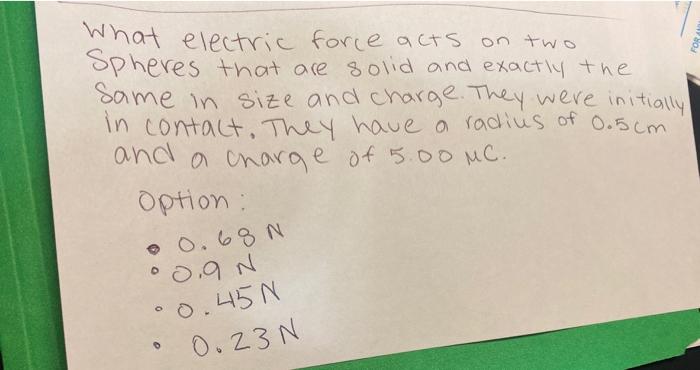 What electric force acts on two
Spheres that are solid and exactly the
Same in size and charge. They were initially
in contact. They have a radius of 0.5cm
and a charge of 5.00 μC.
Option:
• 0.68 N
• 0.9 N
• 0.45 N
• 0.23 N